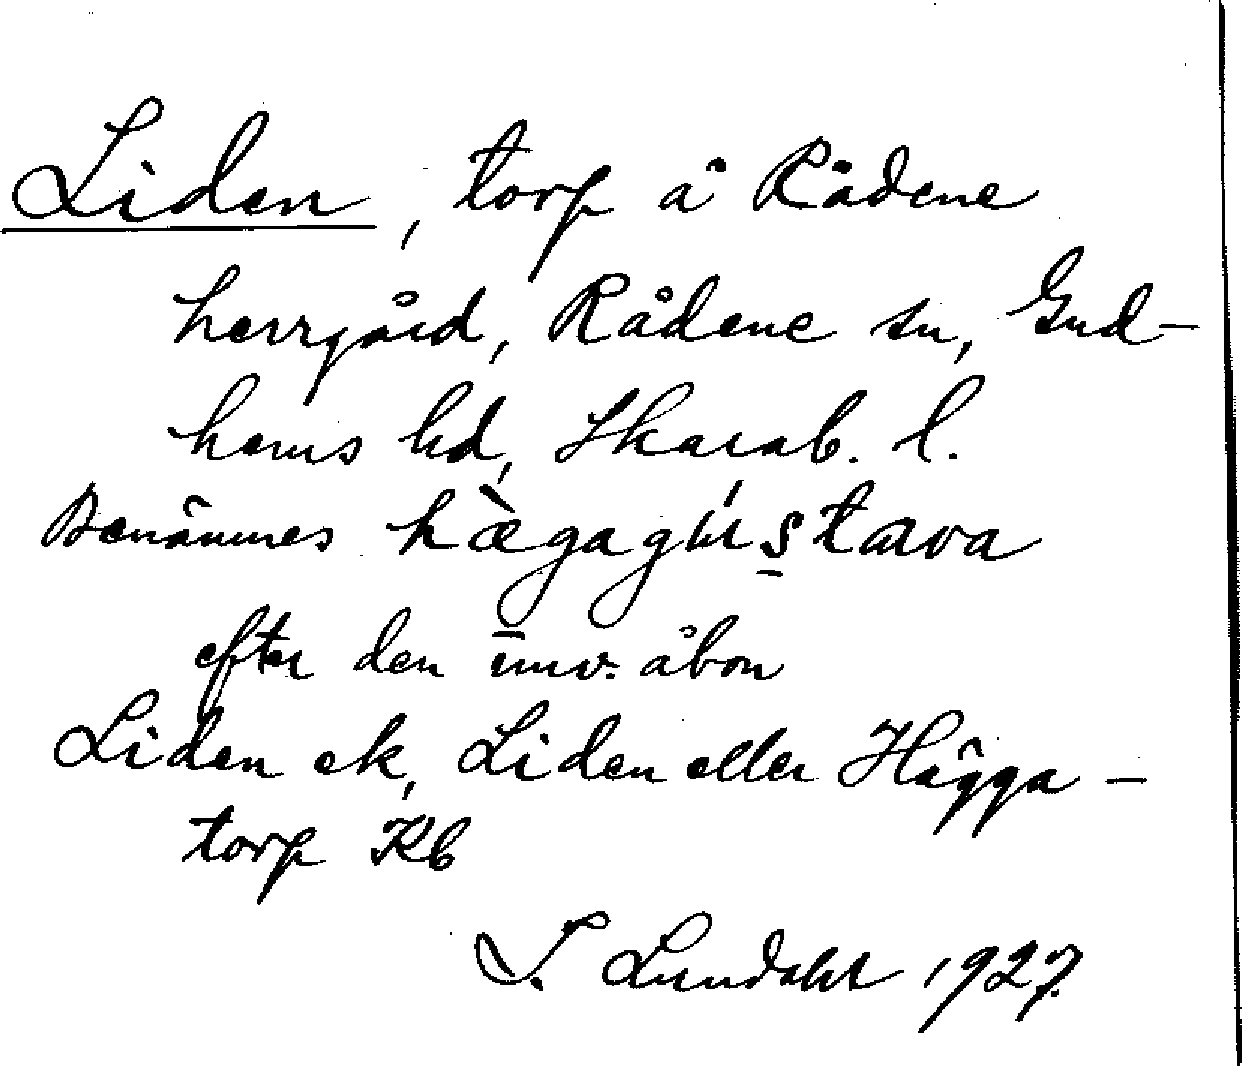 Liden, torp å Rådene
herrgård, Rådene sn, Gud-
hems hd, Skarab. l.
Benämnes hæ̀gagús̱tava
efter den nuv. åbon
Liden ek, Liden eller Hägga-
torp Kb
I. Lundahl 1927.